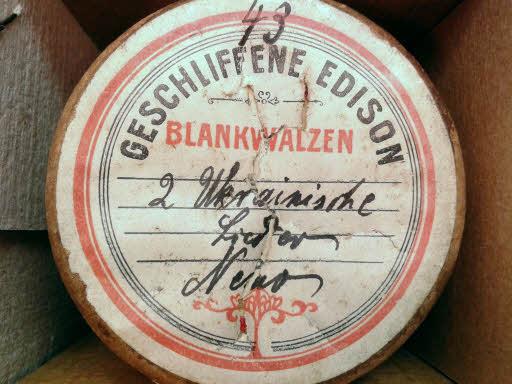 43
GESCHLIFFENE EDISON
BLANKWALZEN
2 Ukrainische
Lieder